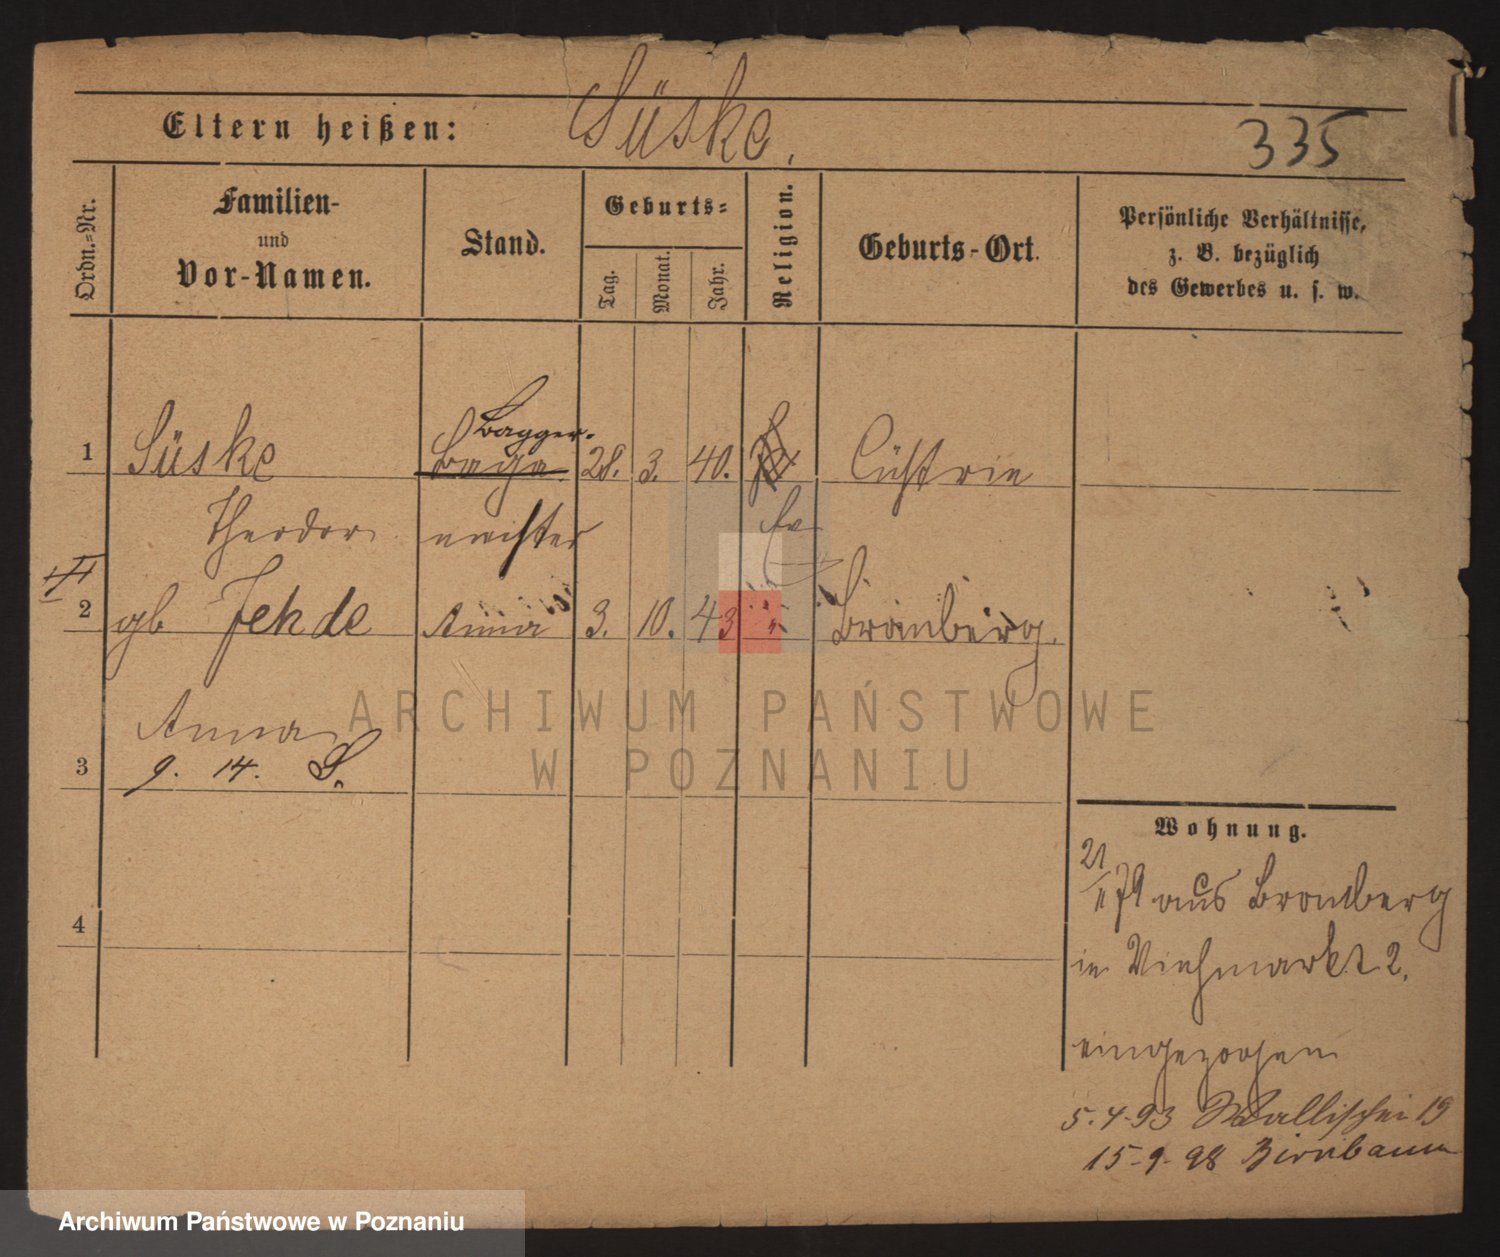 Eltern heißen: Süske.
335
Ordn.=Nr.
Familien-
und
Vor-Namen.
Stand.
Geburts=
Tag.
Monat.
Jahr.
Religion.
Geburts-Ort.
Persönliche Verhältnisse,
z. B. bezüglich
des Gewerbes u. s. w.
Bagger-
1 Süske 28. 3. 40. Cüstrin
Theodor meister ev
2 gb Jehde Anna 3. 10. 43 " Bromberg.
Anna
3 9. 14. S.
4
Wohnung.
21/II 79 aus Bromberg
in Viehmarkt 2.
eingezogen
5.4.93 Wallischei 19
15-9-98 Birnbaum
ARCHIWUM PAŃSTWOWE
W POZNANIU
Archiwum Państwowe w Poznaniu